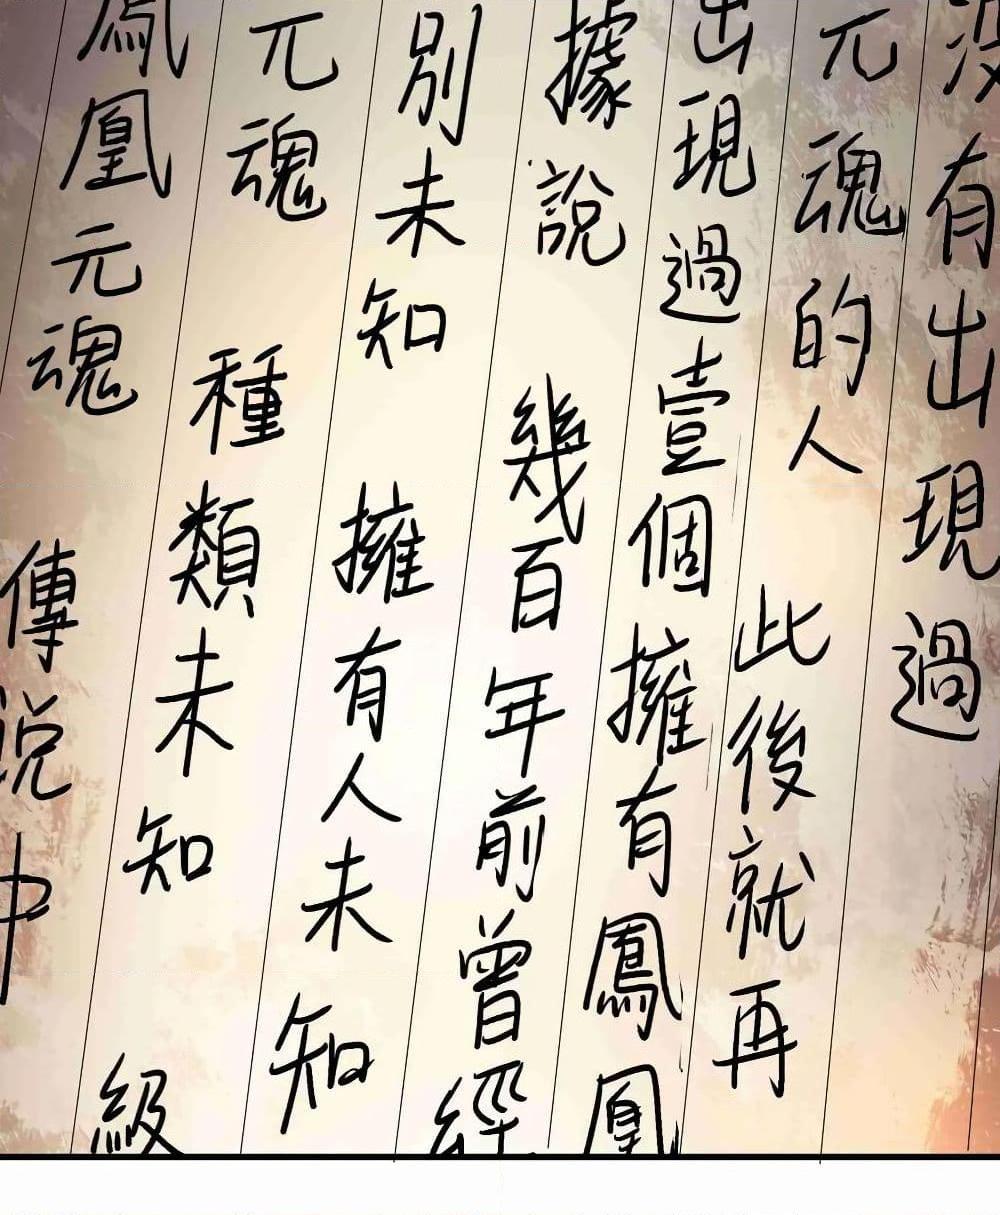 鳳凰元魂 傳说中
元魂 種類未知 級
別未知 擁有人未知
據說 幾百年前曾經
出現過壹個擁有鳳凰
元魂的人 此後就再
没有出現過